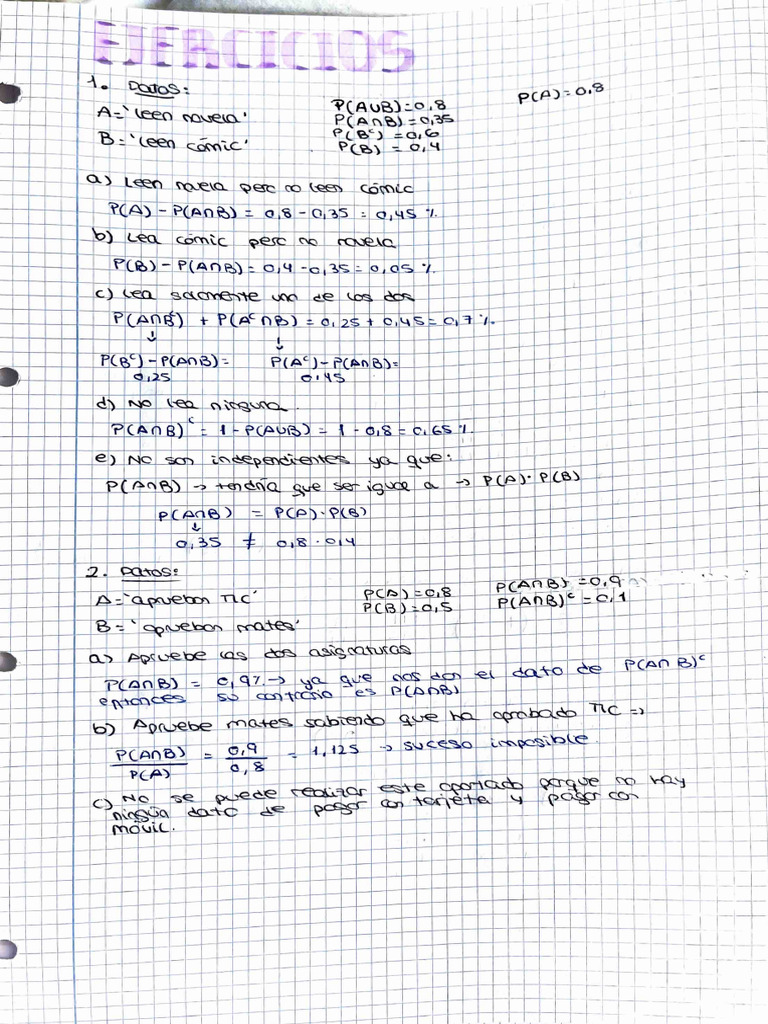 EJERCICIOS
1. Datos:
A='Leen novela'
B='Leen cómic'
P(A∪B)=0,8
P(A∩B)=0,35
P(Bᶜ)=0,6
P(B)=0,4
P(A)=0,8
a) Leen novela pero no leen cómic
P(A)-P(A∩B)=0,8-0,35=0,45%.
b) Lea cómic pero no novela
P(B)-P(A∩B)=0,4-0,35=0,05%.
c) Lea solamente uno de los dos
P(A∩Bᶜ)+P(Aᶜ∩B)=0,25+0,45=0,7%.
↓ ↓
P(Bᶜ)-P(A∩B)= P(Aᶜ)-P(A∩B)=
0,25 0,45
d) No lea ninguna.
P(A∩B)ᶜ=1-P(A∪B)=1-0,8=0,65%.
e) No son independientes ya que:
P(A∩B) → tendría que ser igual a → P(A)·P(B)
P(A∩B) = P(A)·P(B)
↓
0,35 ≠ 0,8·0,4
2. Datos:
A='aprueban TIC'
B='aprueban mates'
P(A)=0,8
P(B)=0,5
P(A∩B)=0,9
P(A∩B)ᶜ=0,1
a) Apruebe las dos asignaturas
P(A∩B)=0,9%→ ya que nos dan el dato de P(A∩B)ᶜ
entonces su contrario es P(A∩B)
b) Apruebe mates sabiendo que ha aprobado TIC ⇒
P(A∩B)/P(A) = 0,9/0,8 = 1,125 → suceso imposible
c) No se puede realizar este apartado porque no hay
ningún dato de pagar con tarjeta y pagar con
móvil.